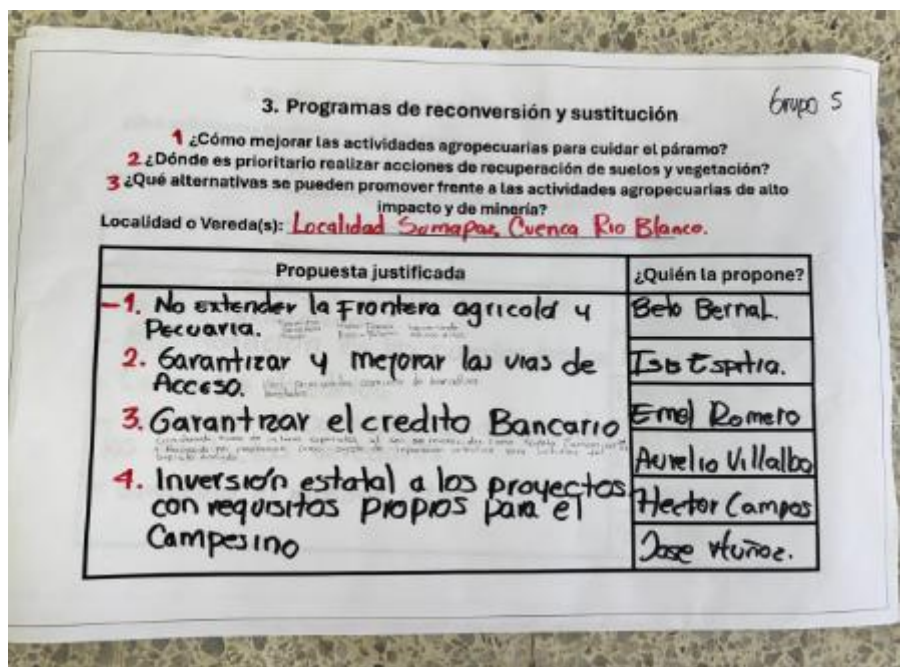 Grupo 5
3. Programas de reconversión y sustitución
1 ¿Cómo mejorar las actividades agropecuarias para cuidar el páramo?
2 ¿Dónde es prioritario realizar acciones de recuperación de suelos y vegetación?
3 ¿Qué alternativas se pueden promover frente a las actividades agropecuarias de alto
impacto y de minería?
Localidad o Vereda(s): Localidad Sumapaz, Cuenca Rio Blanco.
Propuesta justificada
¿Quién la propone?
-1. No extender la Frontera agricola y
Pecuaria.
2. Garantizar y mejorar las vias de
Acceso.
3. Garantizar el credito Bancario
4. Inversión estatal a los proyectos
con requisitos propios para el
Campesino
Beto Bernal.
Espitia.
Romero
Aurelio Villalba
Hector Campos
Jose Muñoz.